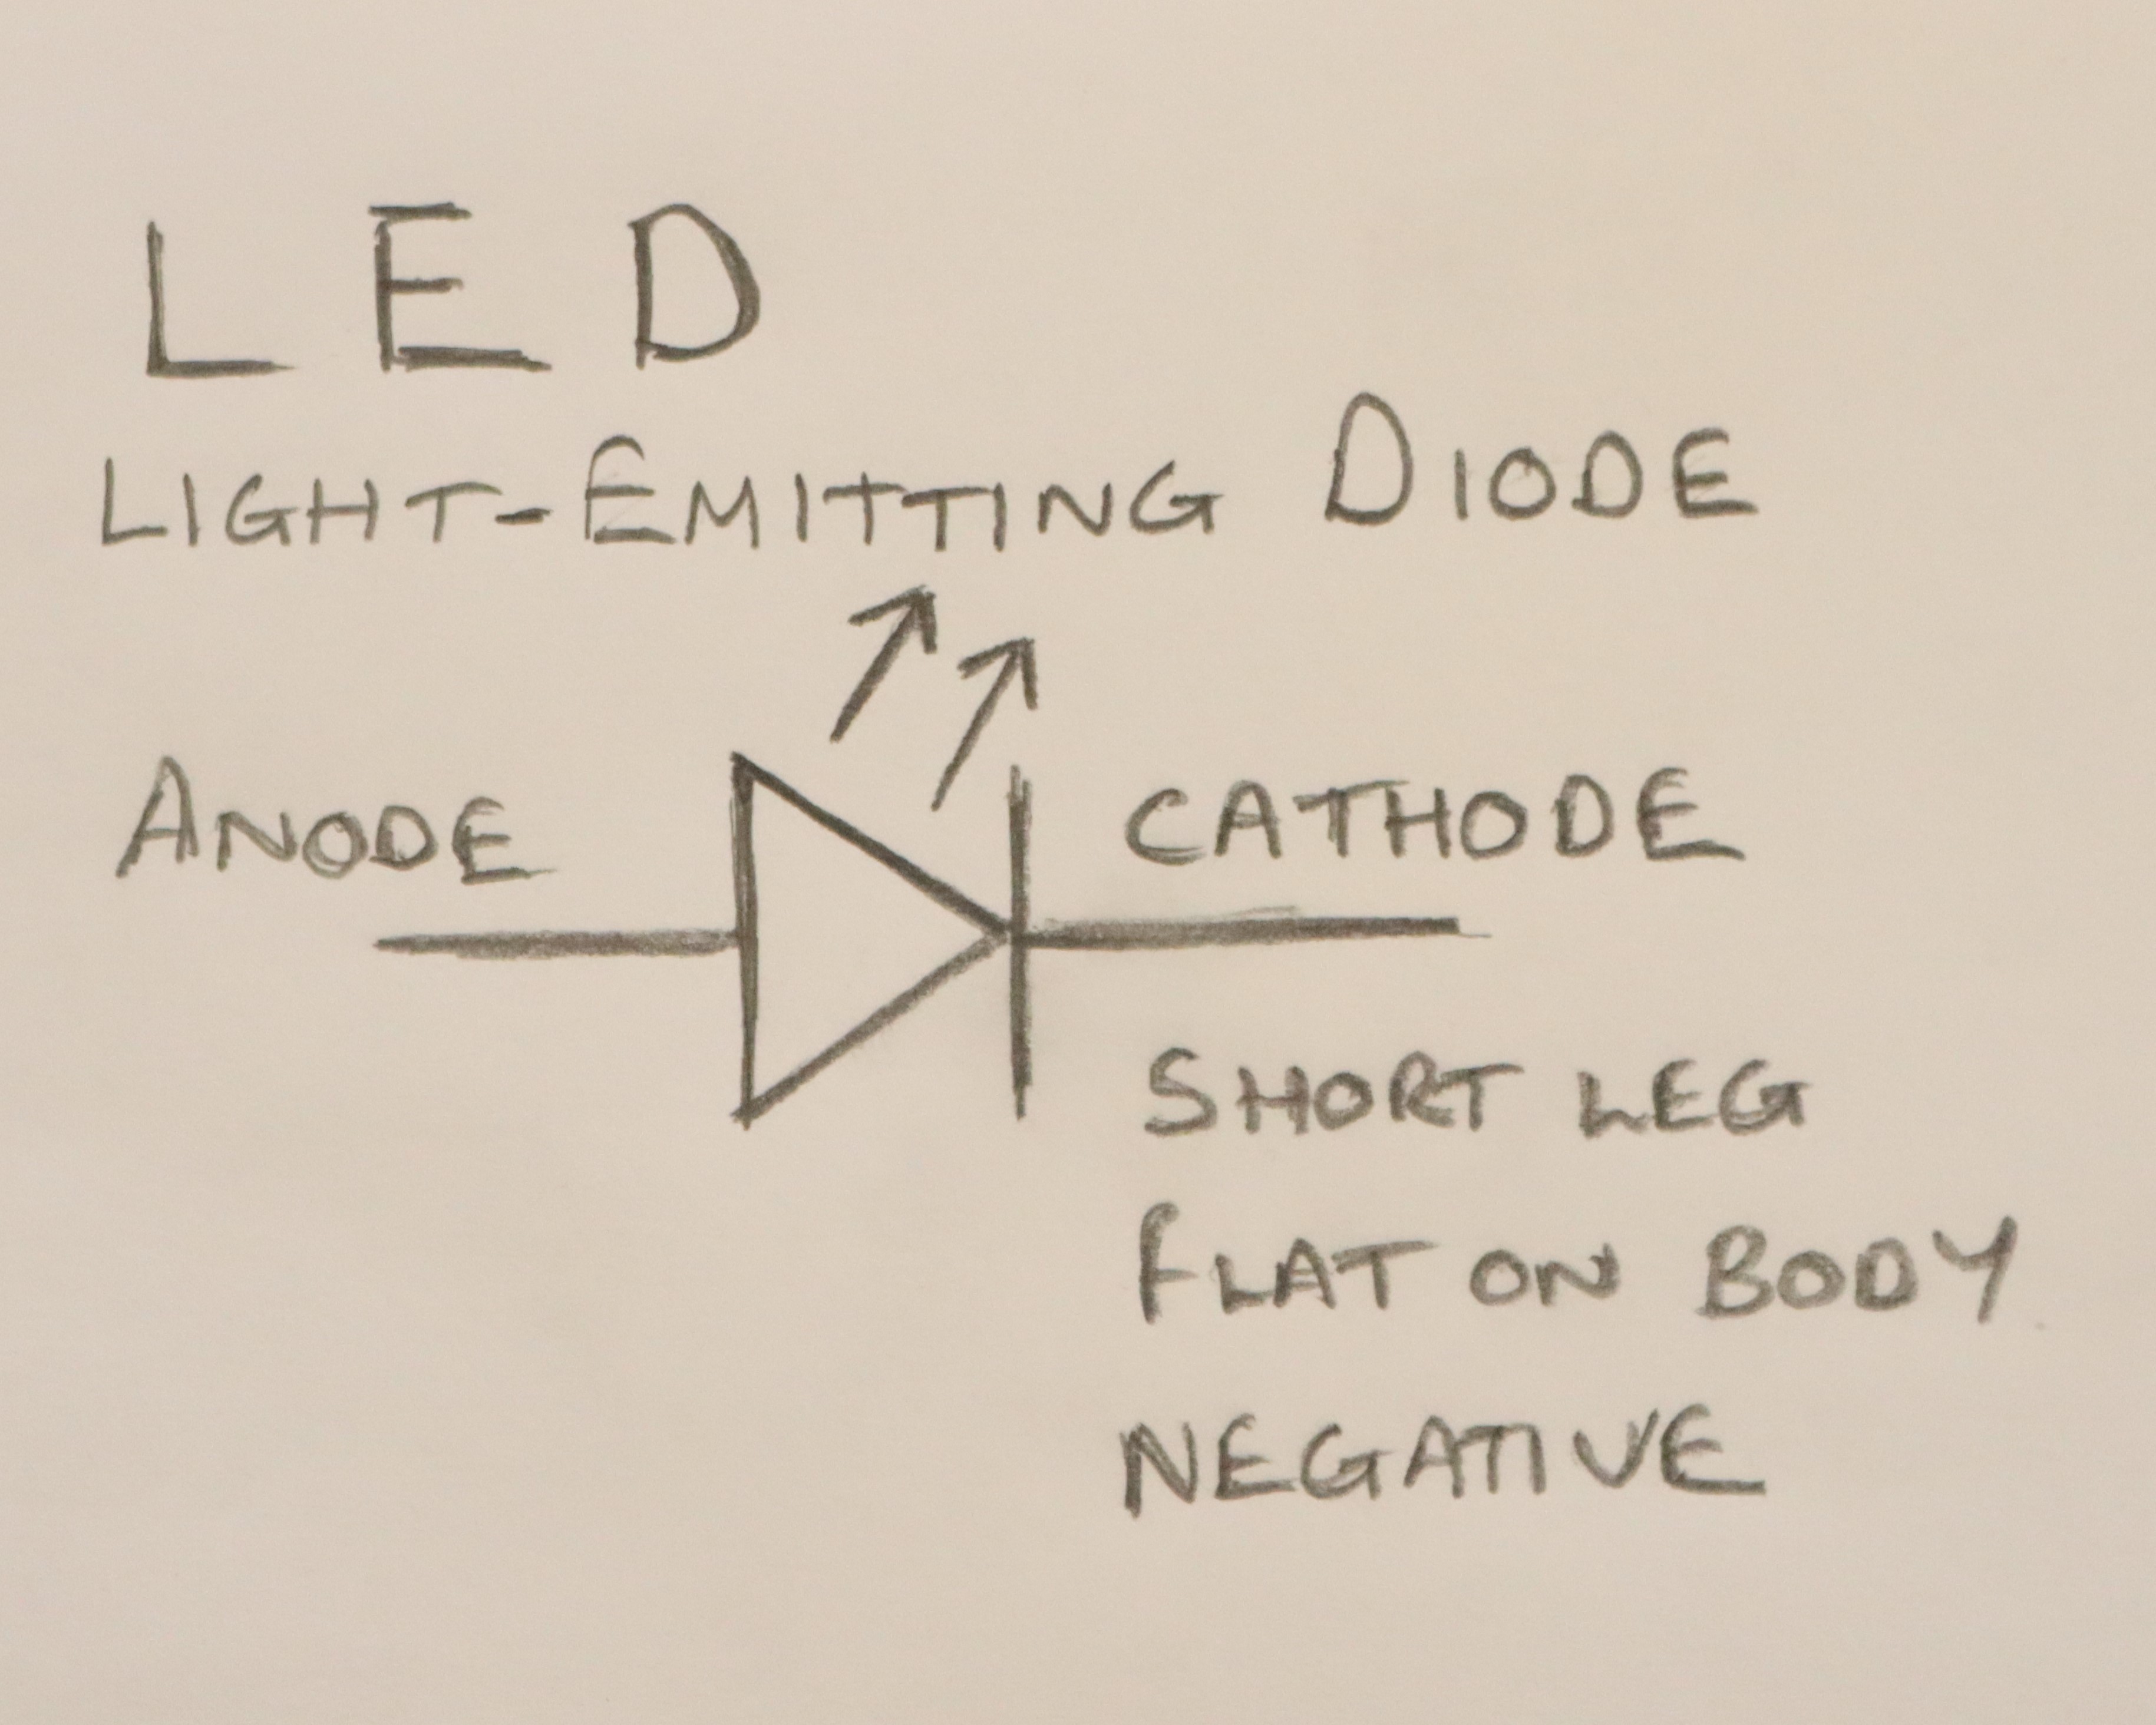 LED
LIGHT-EMITTING DIODE
ANODE
CATHODE
SHORT LEG
FLAT ON BODY
NEGATIVE